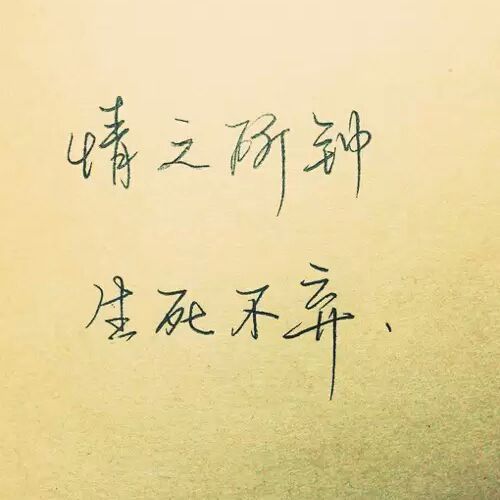 情之所钟
生死不弃、